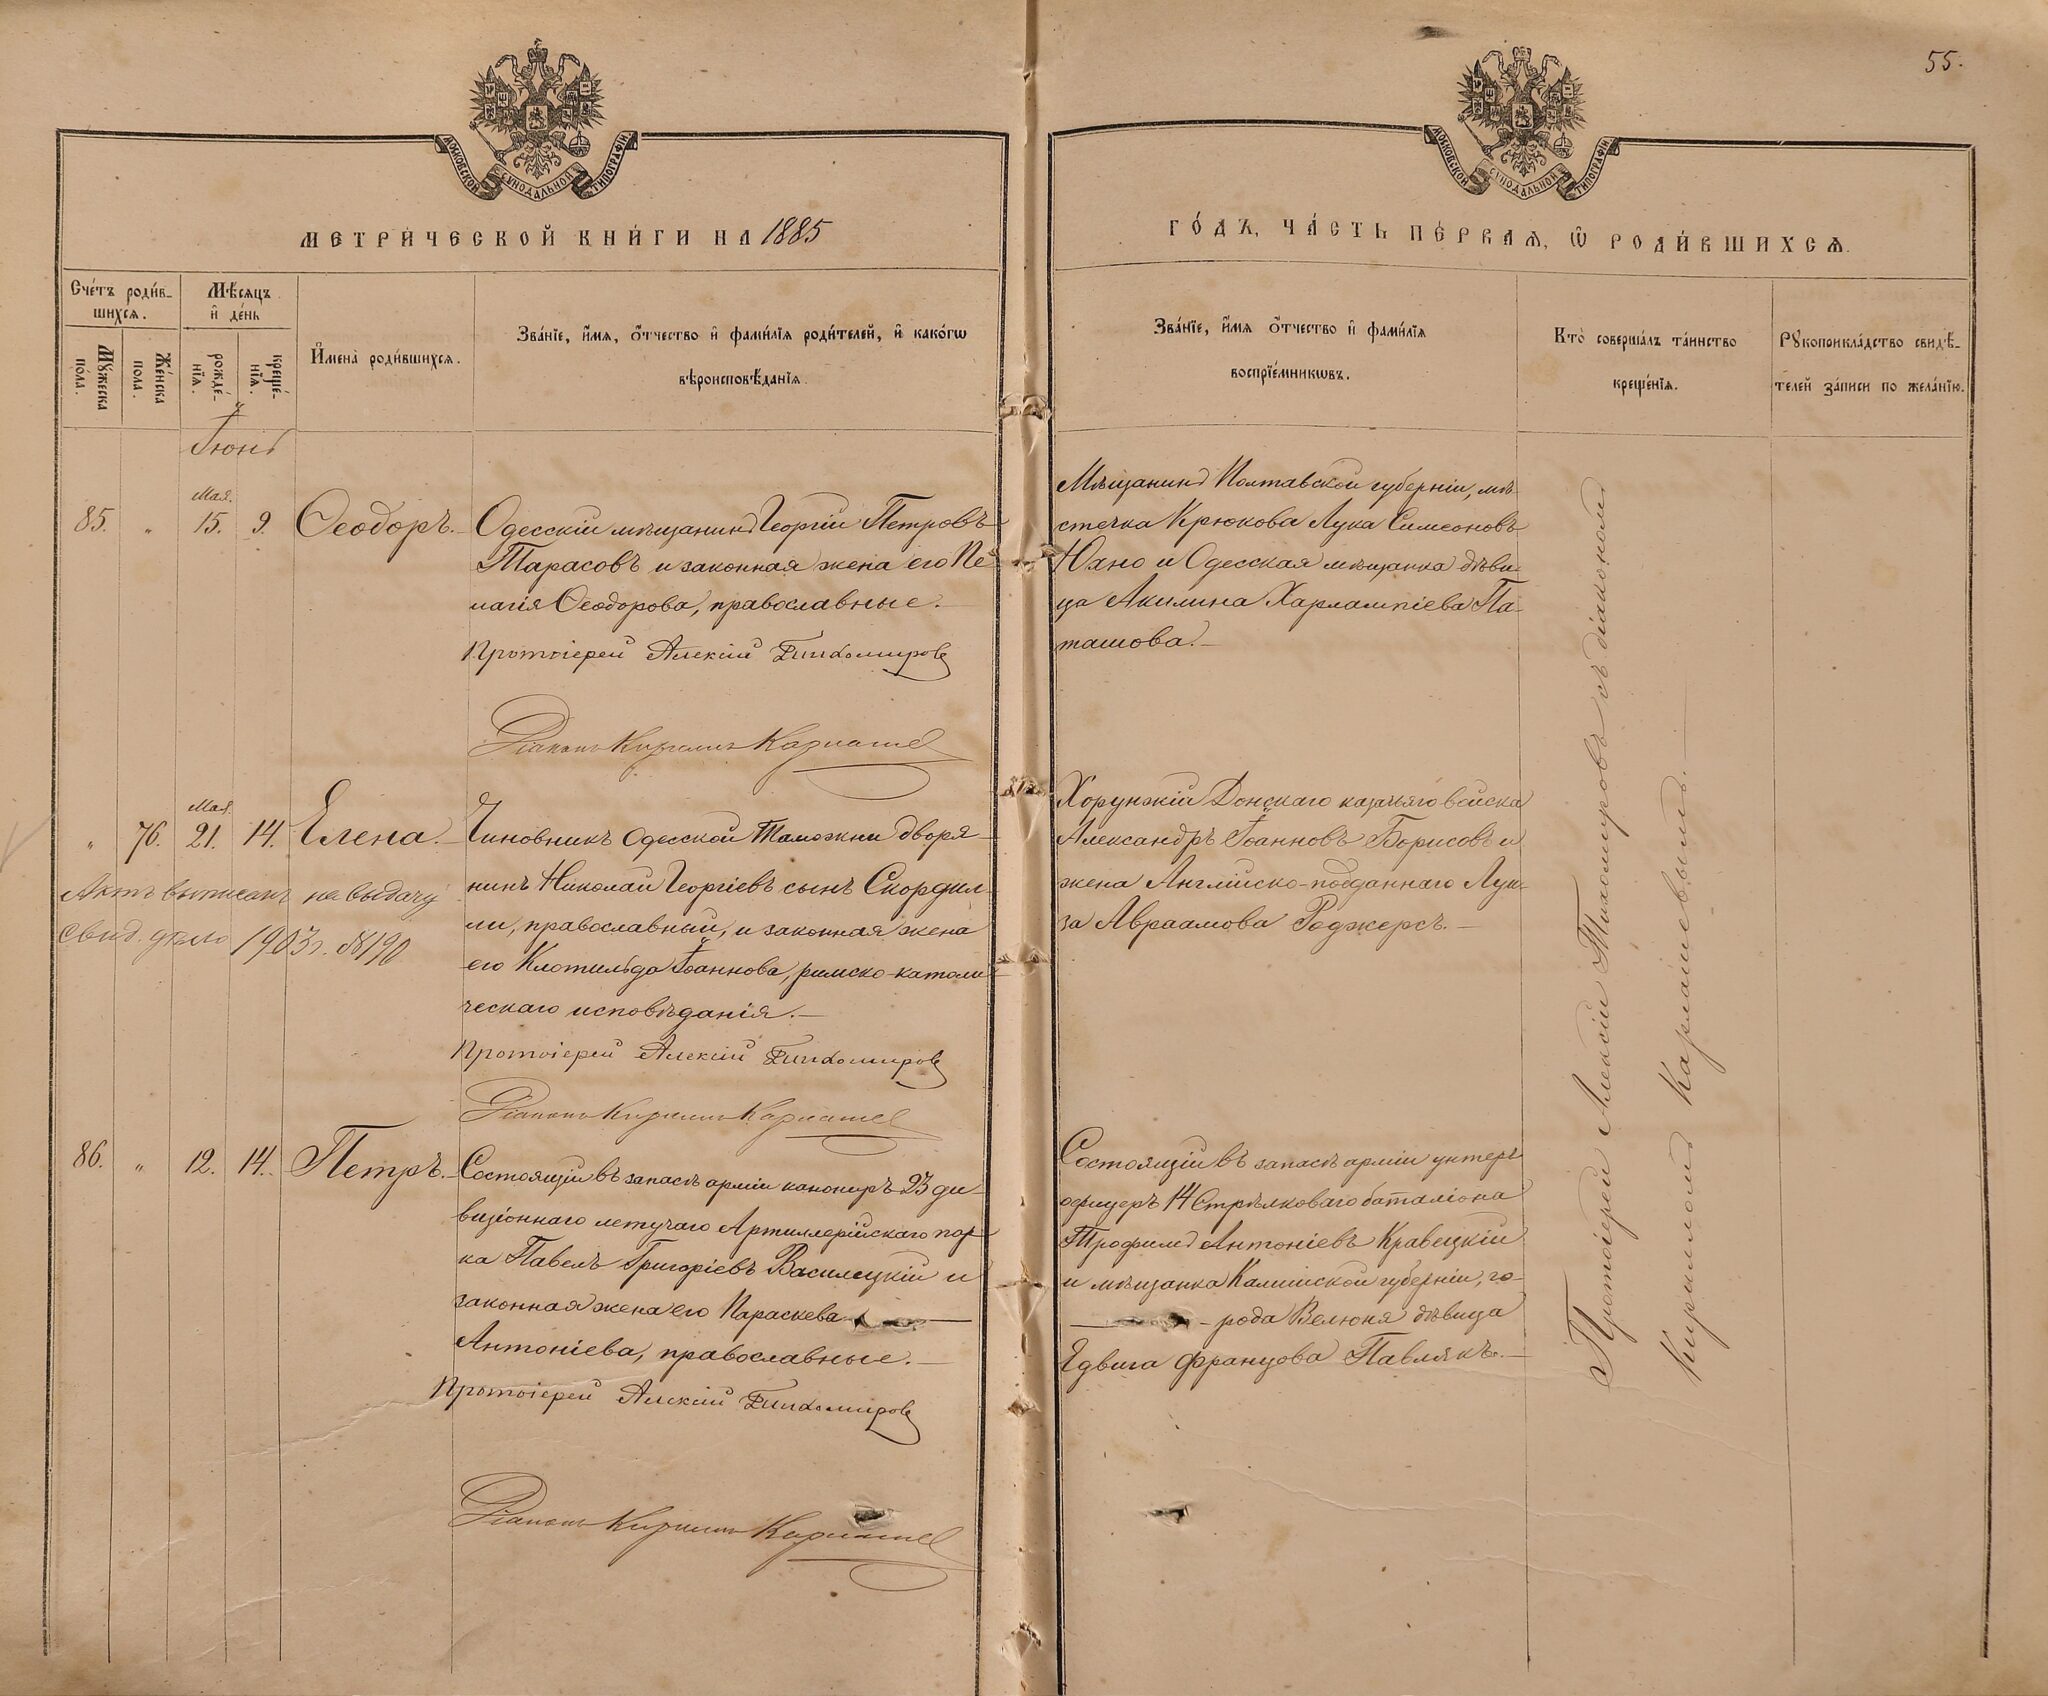 55.
МОСКОВСКОЙ СѴНОДАЛЬНОЙ ТИПОГРАФІИ
МОСКОВСКОЙ СѴНОДАЛЬНОЙ ТИПОГРАФІИ
МЕТРИ́ЧЕСКОЙ КНИ́ГИ НА 1885
ГО́ДЪ, ЧА́СТЬ ПЕ́РВАѦ, Ѡ РОДИ́ВШИХСѦ.
Сче́тъ роди́в-
шихсѧ.
Мꙋ́жеска
по́ла.
Же́нска
пола.
Мѣ́сѧцъ
и҆ де́нь
рожде́-
нїѧ.
креще́-
нїѧ.
И҆мена̀ роди́вшихсѧ.
Зва́нїе, и҆́мѧ, ѻ҆́тчество и҆ фами́лїѧ роди́телей, и҆ како́гѡ
вѣроисповѣ́данїѧ.
Зва́нїе, и҆́мѧ ѻ҆́тчество и҆ фами́лїѧ
воспрїе́мникѡвъ.
Кто̀ соверша́лъ та́инство
креще́нїѧ.
Рꙋкоприкла́дство свидѣ́-
телей за́писи по жела́нїю.
Іюнь
85. " Мая. 15. 9. Ѳеодоръ.
Одесскій мѣщанинъ Георгій Петровъ
Тарасовъ и законная жена его Пе-
лагія Ѳеодорова, православные.
Протоіерей Алексій Тихомировъ
Діаконъ Кириллъ Кармашев
Мѣщанинъ Полтавской губерніи, мѣ-
стечка Крюкова Лука Симеоновъ
Юхно и Одесская мѣщанка дѣви-
ца Акилина Харлампіева Па-
ташова.
" 76. Мая. 21. 14. Елена.
Чиновникъ Одесской Таможни дворя-
нинъ Николай Георгіевъ сынъ Скордил-
ли, православный, и законная жена
его Клотильда Іоаннова, римско-католи-
ческаго исповѣданія.
Протоіерей Алексій Тихомировъ
Діаконъ Кириллъ Кармашев
Актъ выписанъ на выдачу
свид. дѣло 1903 г. № 190
Хорунжій Донскаго казачьяго войска
Александръ Іоанновъ Борисовъ и
жена Англійско-подданнаго Луи-
за Авраамова Роджерсъ.
86. " 12. 14. Петръ.
Состоящій въ запасѣ арміи канониръ 23 ди-
визіоннаго летучаго Артиллерійскаго пар-
ка Павелъ Григоріевъ Василецкій и
законная жена его Параскева
Антоніева, православные.
Протоіерей Алексій Тихомировъ
Діаконъ Кириллъ Кармашев
Состоящій въ запасѣ арміи унтеръ
офицеръ 14 Стрѣлковаго баталіона
Трофимъ Антоніевъ Кравецкій
и мѣщанка Калишской губерніи, го-
рода Велюня дѣвица
Ядвига Францова Павлякъ.
Протоіерей Алексій Тихомировъ съ діакономъ
Кирилломъ Кармашевымъ.